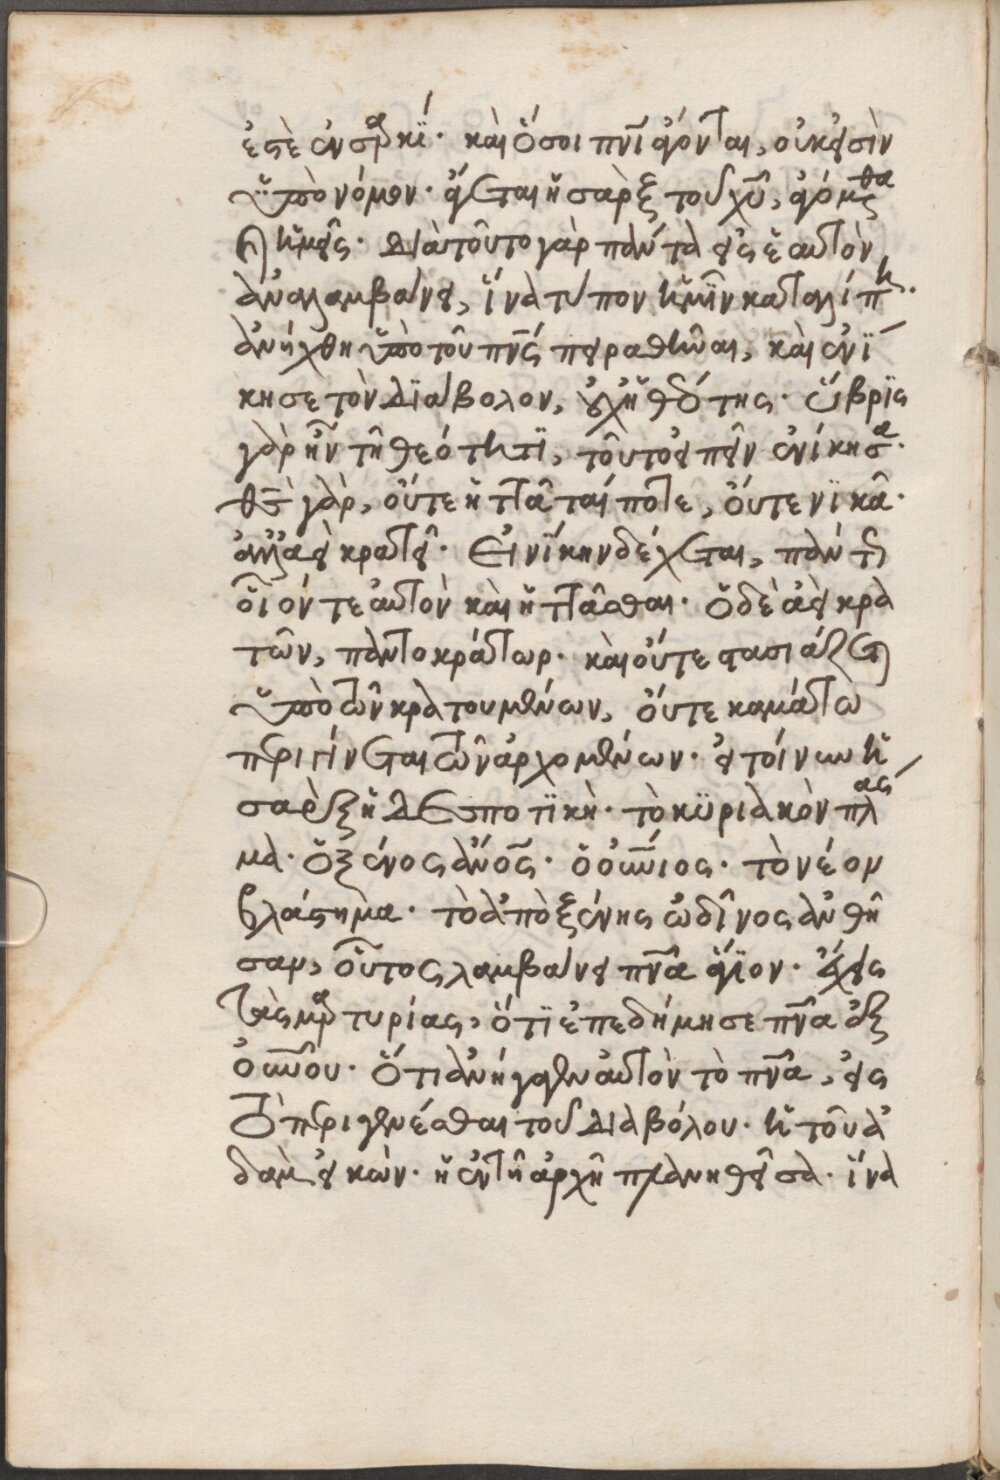 ἐστὲ ἐν σαρκί. καὶ ὅσοι πνι ἄγονται, οὐκ εἰσὶν
ὑπὸ νόμον. ἄγεται ἡ σὰρξ τοῦ χυ, ἀγόμεθα
καὶ ἡμεῖς. διὰ τοῦτο γὰρ πάντα εἰς ἑαυτὸν
ἀναλαμβάνει, ἵνα τύπον ἡμῖν καταλίπη.
ἀνήχθη ὑπὸ τοῦ πνς πειραθῆναι, καὶ ἐνί
κησε τὸν διάβολον, οὐχ ἡ θεότης. ὕβρις
γὰρ ἦν τῆ θεότητι, τοῦτο εἰπεῖν ἐνίκησα.
θς γὰρ, οὔτε ἡττᾶταί ποτε, οὔτε νικᾶ.
ἀλλὰ ἀεὶ κρατεῖ. εἰ νίκην δέχεται, πάντως
οἷόν τε αὐτὸν καὶ ἡττᾶσθαι. ὁ δὲ ἀεὶ κρα
τῶν, παντοκράτωρ. καὶ οὔτε στασιάζεται
ὑπὸ τῶν κρατουμένων, οὔτε καμάτω
περιγίνεται τῶν ἀρχομένων. εἰ τοίνυν ἡ
σὰρξ ἡ δεσποτικὴ. τὸ κυριακὸν πλάς
μα. ὁ ξένος ἄνος. ὁ οὐνιος. τὸ νέον
βλάστημα. τὸ ἀπὸ ξένης ὠδῖνος ἀνθῆ
σαν, οὗτος λαμβάνει πνα ἅγιον. ἔχεις
τὰς μαρτυρίας, ὅτι ἐπεδήμησε πνα ἐξ
οὐνου. ὅτι ἀνήγαγεν αὐτὸν τὸ πνα, εἰς
τὸ περιγενέσθαι τοῦ διαβόλου. ἡ τοῦ ἀ
δὰμ εἰκὼν. ἡ ἐν τῆ ἀρχῆ πλανηθεῖσα. ἵνα